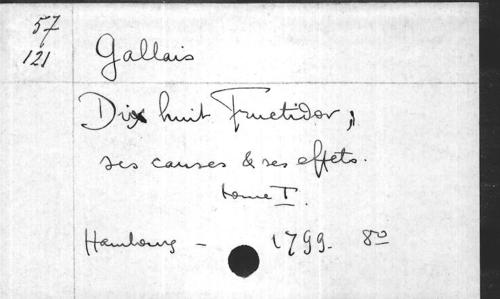 57
121
Gallais
Dix huit Fructidor,
ses causes & ses effets.
tome I.
Hambourg - 1799. 8º